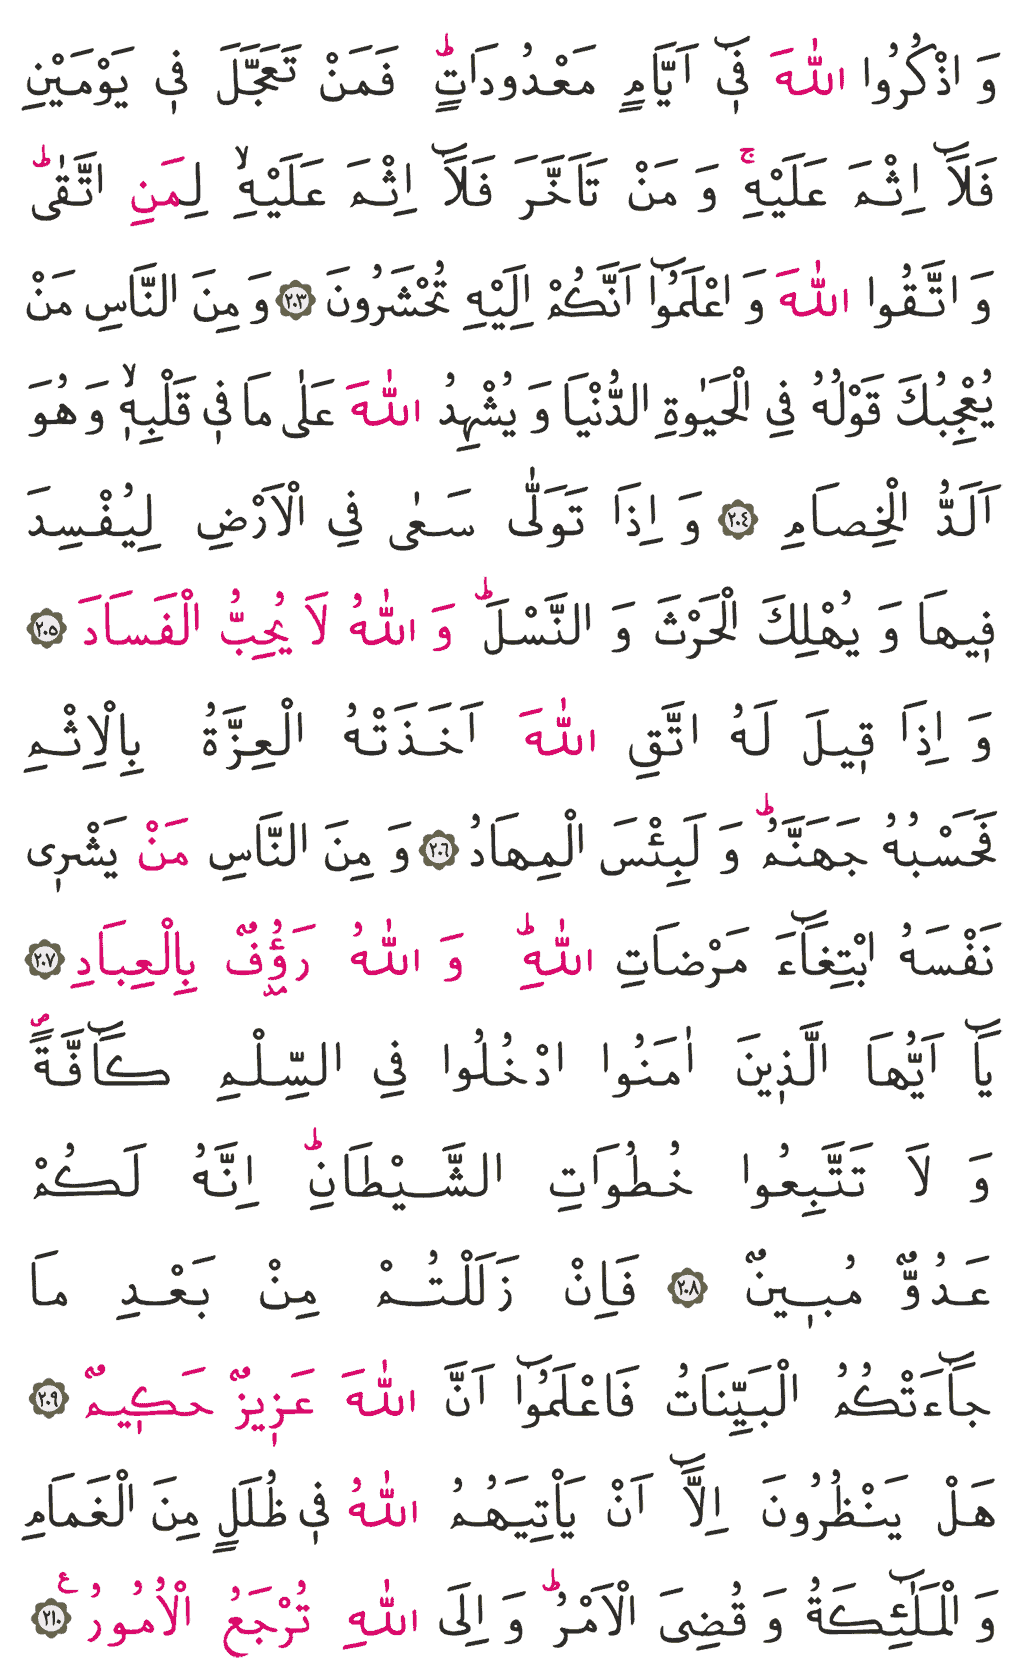 وَ اذْكُرُوا اللّٰهَ فٖٓي اَيَّامٍ مَعْدُودَاتٍؕ فَمَنْ تَعَجَّلَ فٖي يَوْمَيْنِ
فَلَآ اِثْمَ عَلَيْهِۚ وَ مَنْ تَاَخَّرَ فَلَآ اِثْمَ عَلَيْهِۙ لِمَنِ اتَّقٰىؕ
وَ اتَّقُوا اللّٰهَ وَ اعْلَمُٓوا اَنَّكُمْ اِلَيْهِ تُحْشَرُونَ ﴿٢٠٣﴾ وَ مِنَ النَّاسِ مَنْ
يُعْجِبُكَ قَوْلُهُ فِي الْحَيٰوةِ الدُّنْيَا وَ يُشْهِدُ اللّٰهَ عَلٰى مَا فٖي قَلْبِهٖۙ وَ هُوَ
اَلَدُّ الْخِصَامِ ﴿٢٠٤﴾ وَ اِذَا تَوَلّٰى سَعٰى فِي الْاَرْضِ لِيُفْسِدَ
فٖيهَا وَ يُهْلِكَ الْحَرْثَ وَ النَّسْلَؕ وَ اللّٰهُ لَا يُحِبُّ الْفَسَادَ ﴿٢٠٥﴾
وَ اِذَا قٖيلَ لَهُ اتَّقِ اللّٰهَ اَخَذَتْهُ الْعِزَّةُ بِالْاِثْمِ
فَحَسْبُهُ جَهَنَّمُؕ وَ لَبِئْسَ الْمِهَادُ ﴿٢٠٦﴾ وَ مِنَ النَّاسِ مَنْ يَشْرٖى
نَفْسَهُ ابْتِغَٓاءَ مَرْضَاتِ اللّٰهِؕ وَ اللّٰهُ رَؤُ۫فٌ بِالْعِبَادِ ﴿٢٠٧﴾
يَٓا اَيُّهَا الَّذٖينَ اٰمَنُوا ادْخُلُوا فِي السِّلْمِ كَٓافَّةًࣕ
وَ لَا تَتَّبِعُوا خُطُوَاتِ الشَّيْطَانِؕ اِنَّهُ لَكُمْ
عَدُوٌّ مُبٖينٌ ﴿٢٠٨﴾ فَاِنْ زَلَلْتُمْ مِنْ بَعْدِ مَا
جَٓاءَتْكُمُ الْبَيِّنَاتُ فَاعْلَمُٓوا اَنَّ اللّٰهَ عَزٖيزٌ حَكٖيمٌ ﴿٢٠٩﴾
هَلْ يَنْظُرُونَ اِلَّٓا اَنْ يَاْتِيَهُمُ اللّٰهُ فٖي ظُلَلٍ مِنَ الْغَمَامِ
وَ الْمَلٰٓئِكَةُ وَ قُضِيَ الْاَمْرُؕ وَ اِلَى اللّٰهِ تُرْجَعُ الْاُمُورُ ع ﴿٢١٠﴾